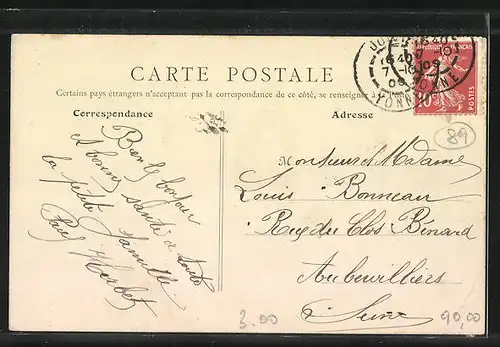 CARTE POSTALE
Certains pays étrangers n'acceptant pas la correspondance de ce côté, se renseigner à
Correspondance
Adresse
Bien le bonjour
et bonne santé à toute
la petite famille
Paul
Monsieur et Madame
Louis Bonneau
Rue du Clos Bénard
Aubervilliers
Seine
REPUBLIQUE FRANÇAISE
10
POSTES
YONNE
89
3.00
90,00